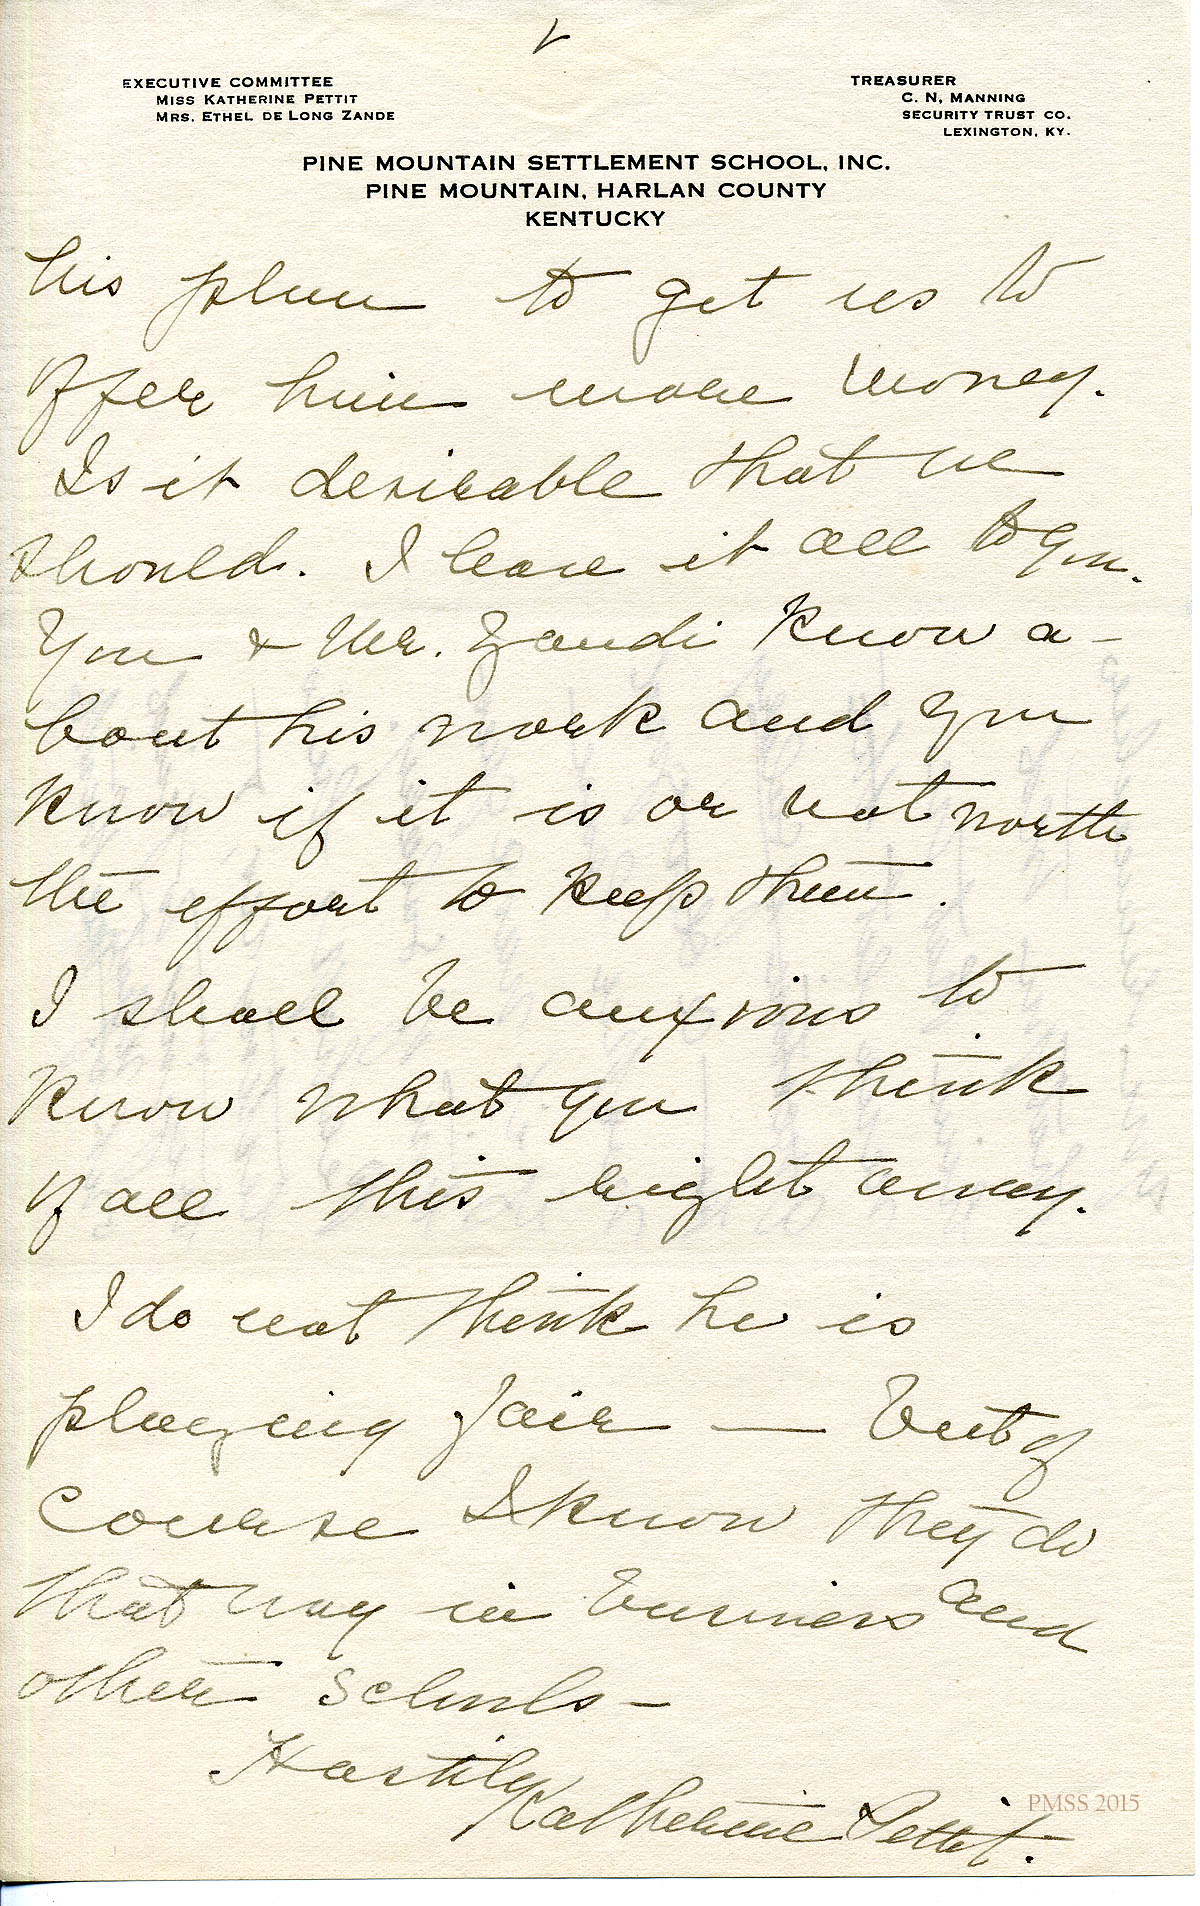 V
EXECUTIVE COMMITTEE
MISS KATHERINE PETTIT
MRS. ETHEL DE LONG ZANDE
TREASURER
C. N. MANNING
SECURITY TRUST CO.
LEXINGTON, KY.
PINE MOUNTAIN SETTLEMENT SCHOOL, INC.
PINE MOUNTAIN, HARLAN COUNTY
KENTUCKY
his plan to get us to
offer him more money.
Is it desirable that we
should. I leave it all to you.
You & Mr. Zandi know a-
bout his work and you
know if it is or not worth
the effort to keep them.
I shall be anxious to
know what you think
of all this right away.
I do not think he is
playing fair — but of
course I know they do
that way in business and
other schools —
Hastily
Katherine Pettit.
PMSS 2015